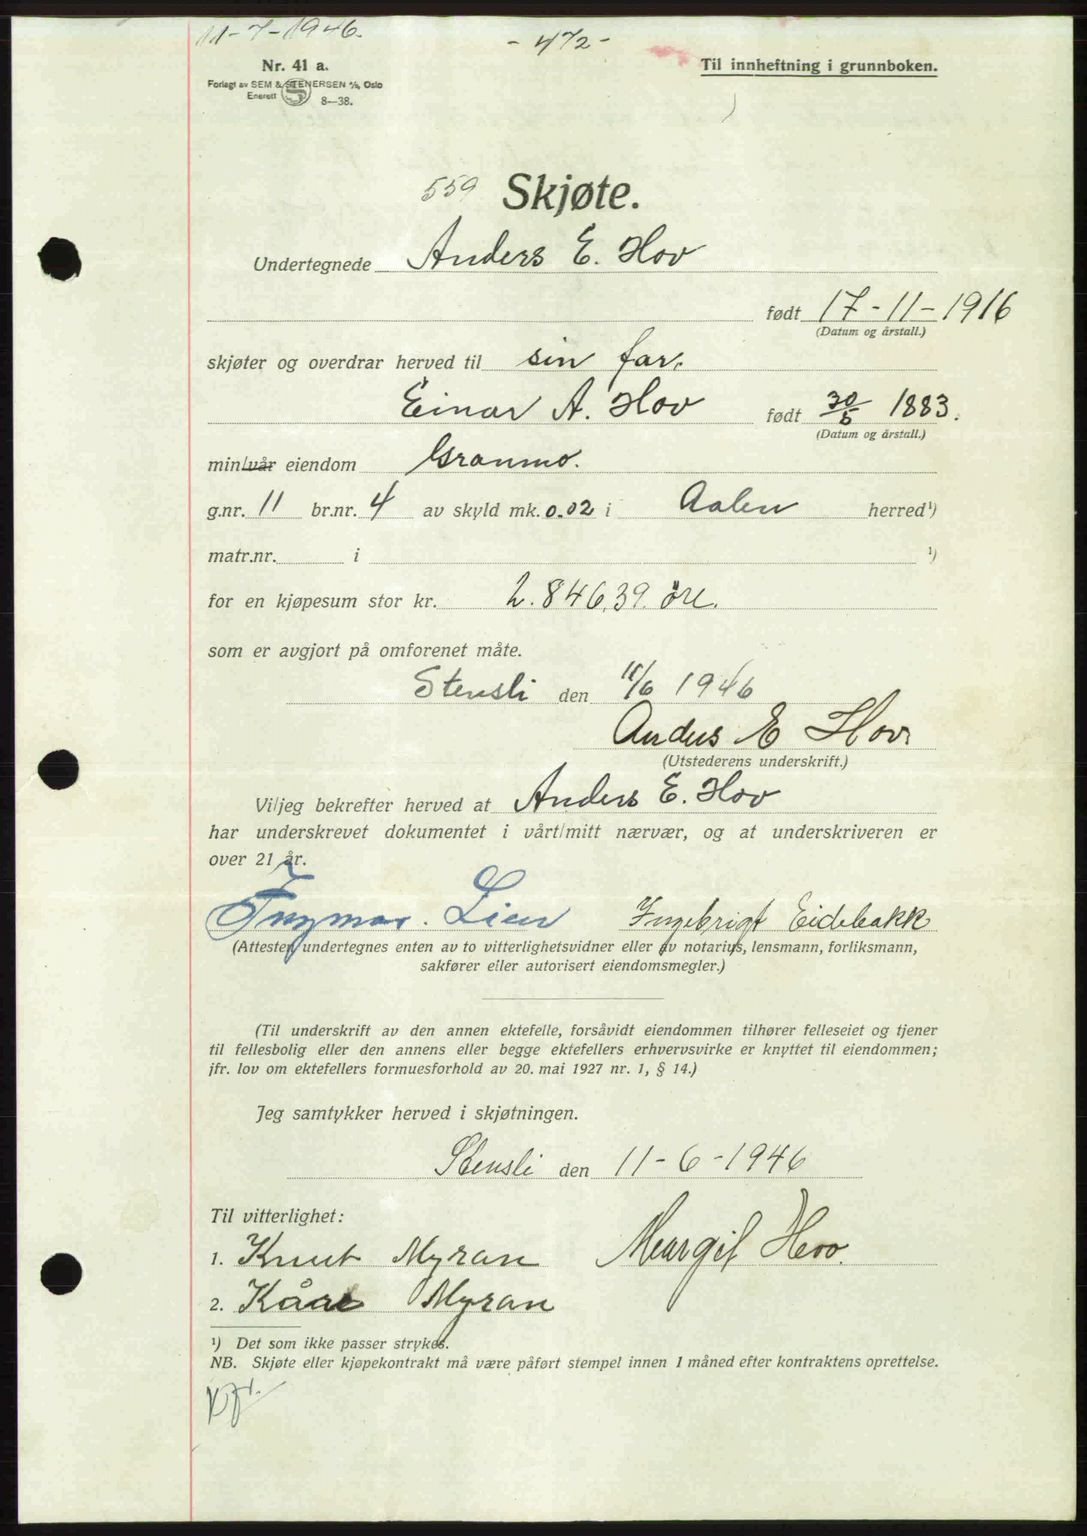 11-7-1946.
- 472 -
Nr. 41 a.
Til innheftning i grunnboken.
Forlagt av SEM & STENERSEN A/S, Oslo
Enerett 8—38.
559 Skjøte.
Undertegnede Anders E. Hov
født 17-11-1916
(Datum og årstall.)
skjøter og overdrar herved til sin far,
Einar A. Hov født 30/5 1883.
(Datum og årstall.)
min/vår eiendom Granmo.
g.nr. 11 br.nr. 4 av skyld mk. 0.02 i Aalen herred¹)
matr.nr. i ¹)
for en kjøpesum stor kr. 2.846,39 øre.
som er avgjort på omforenet måte.
Stensli den 11/6 1946
Anders E Hov.
(Utstederens underskrift.)
Vi/jeg bekrefter herved at Anders E. Hov
har underskrevet dokumentet i vårt/mitt nærvær, og at underskriveren er
over 21 år.
Ingmar. Lien Ingebrigt Eidebakk
(Attesten undertegnes enten av to vitterlighetsvidner eller av notarius, lensmann, forliksmann,
sakfører eller autorisert eiendomsmegler.)
(Til underskrift av den annen ektefelle, forsåvidt eiendommen tilhører felleseiet og tjener
til fellesbolig eller den annens eller begge ektefellers erhvervsvirke er knyttet til eiendommen;
jfr. lov om ektefellers formuesforhold av 20. mai 1927 nr. 1, § 14.)
Jeg samtykker herved i skjøtningen.
Stensli den 11-6-1946
Til vitterlighet:
1. Knut Myran Margit Hov.
2. Kåre Myran
¹) Det som ikke passer strykes.
NB. Skjøte eller kjøpekontrakt må være påført stempel innen 1 måned efter kontraktens oprettelse.